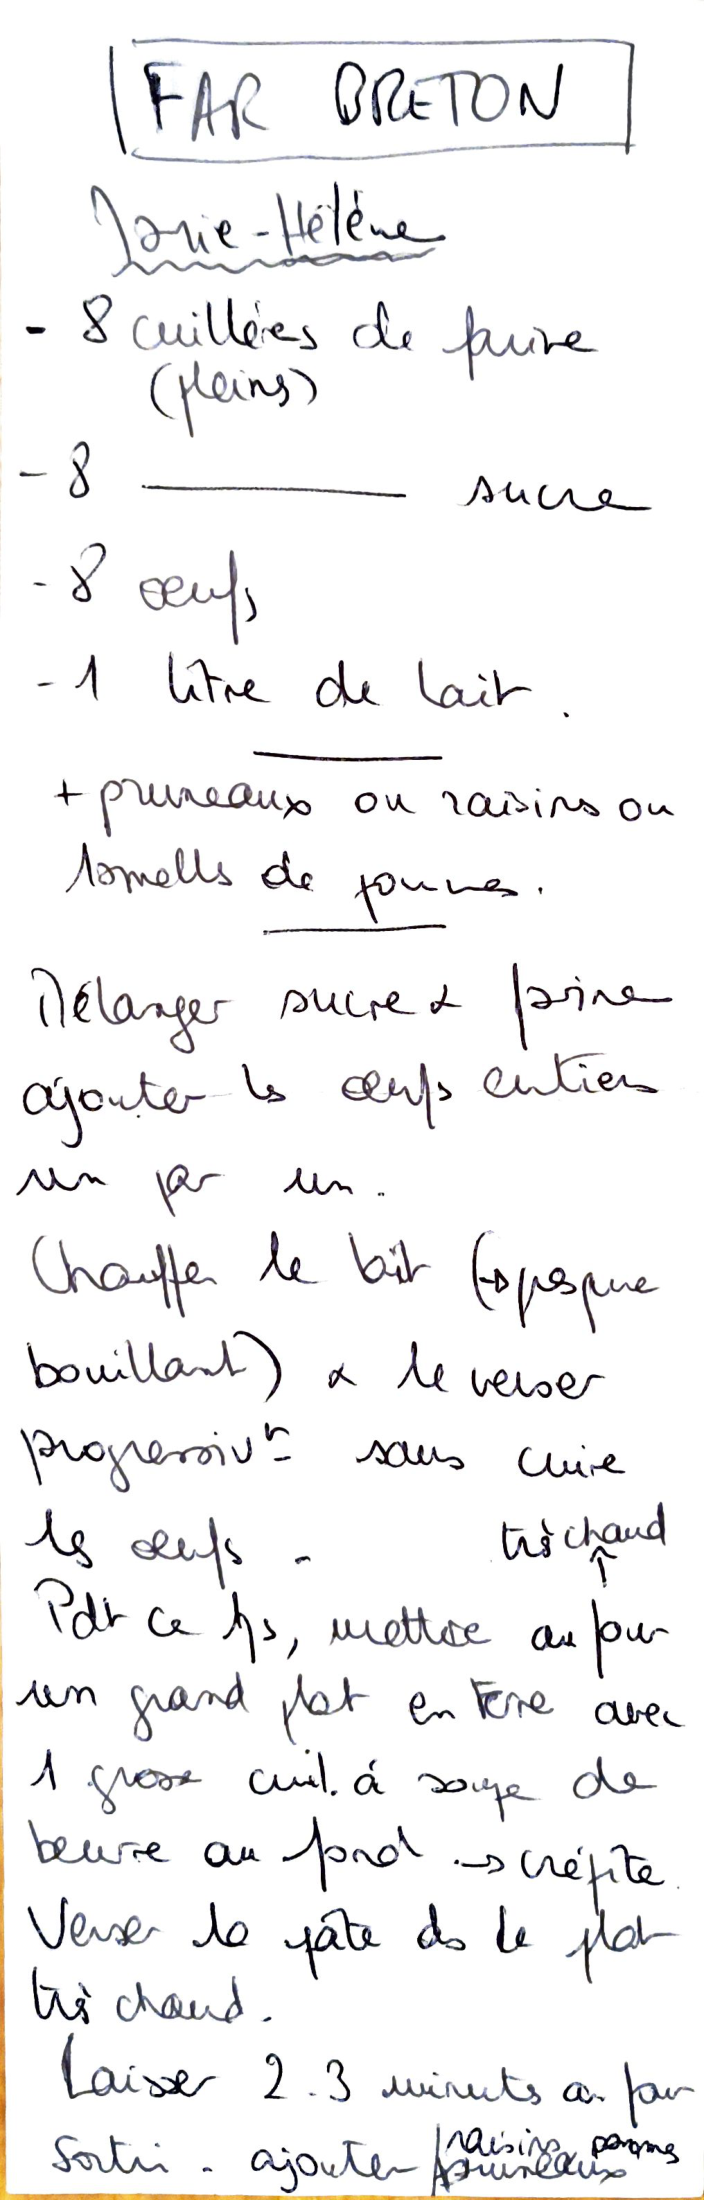 FAR BRETON
Marie-Hélène
- 8 cuillères de farine
(pleins)
- 8 ———— sucre
- 8 œufs
- 1 litre de lait.
+ pruneaux ou raisins ou
lamells de pommes.
Mélanger sucre & farine
ajouter les œufs entiers
un par un.
Chauffer le lait (→ presque
bouillant) & le verser
progressivt sans cuire
les œufs -
très chaud
↑
Pdt ce tps, mettre au four
un grand plat en terre avec
1 grosse cuil. à soupe de
beurre au fond → crépite.
Verser la pâte ds le plat
très chaud.
Laisser 2-3 minutes au four
Sortir - ajouter pruneaux
raisins pommes